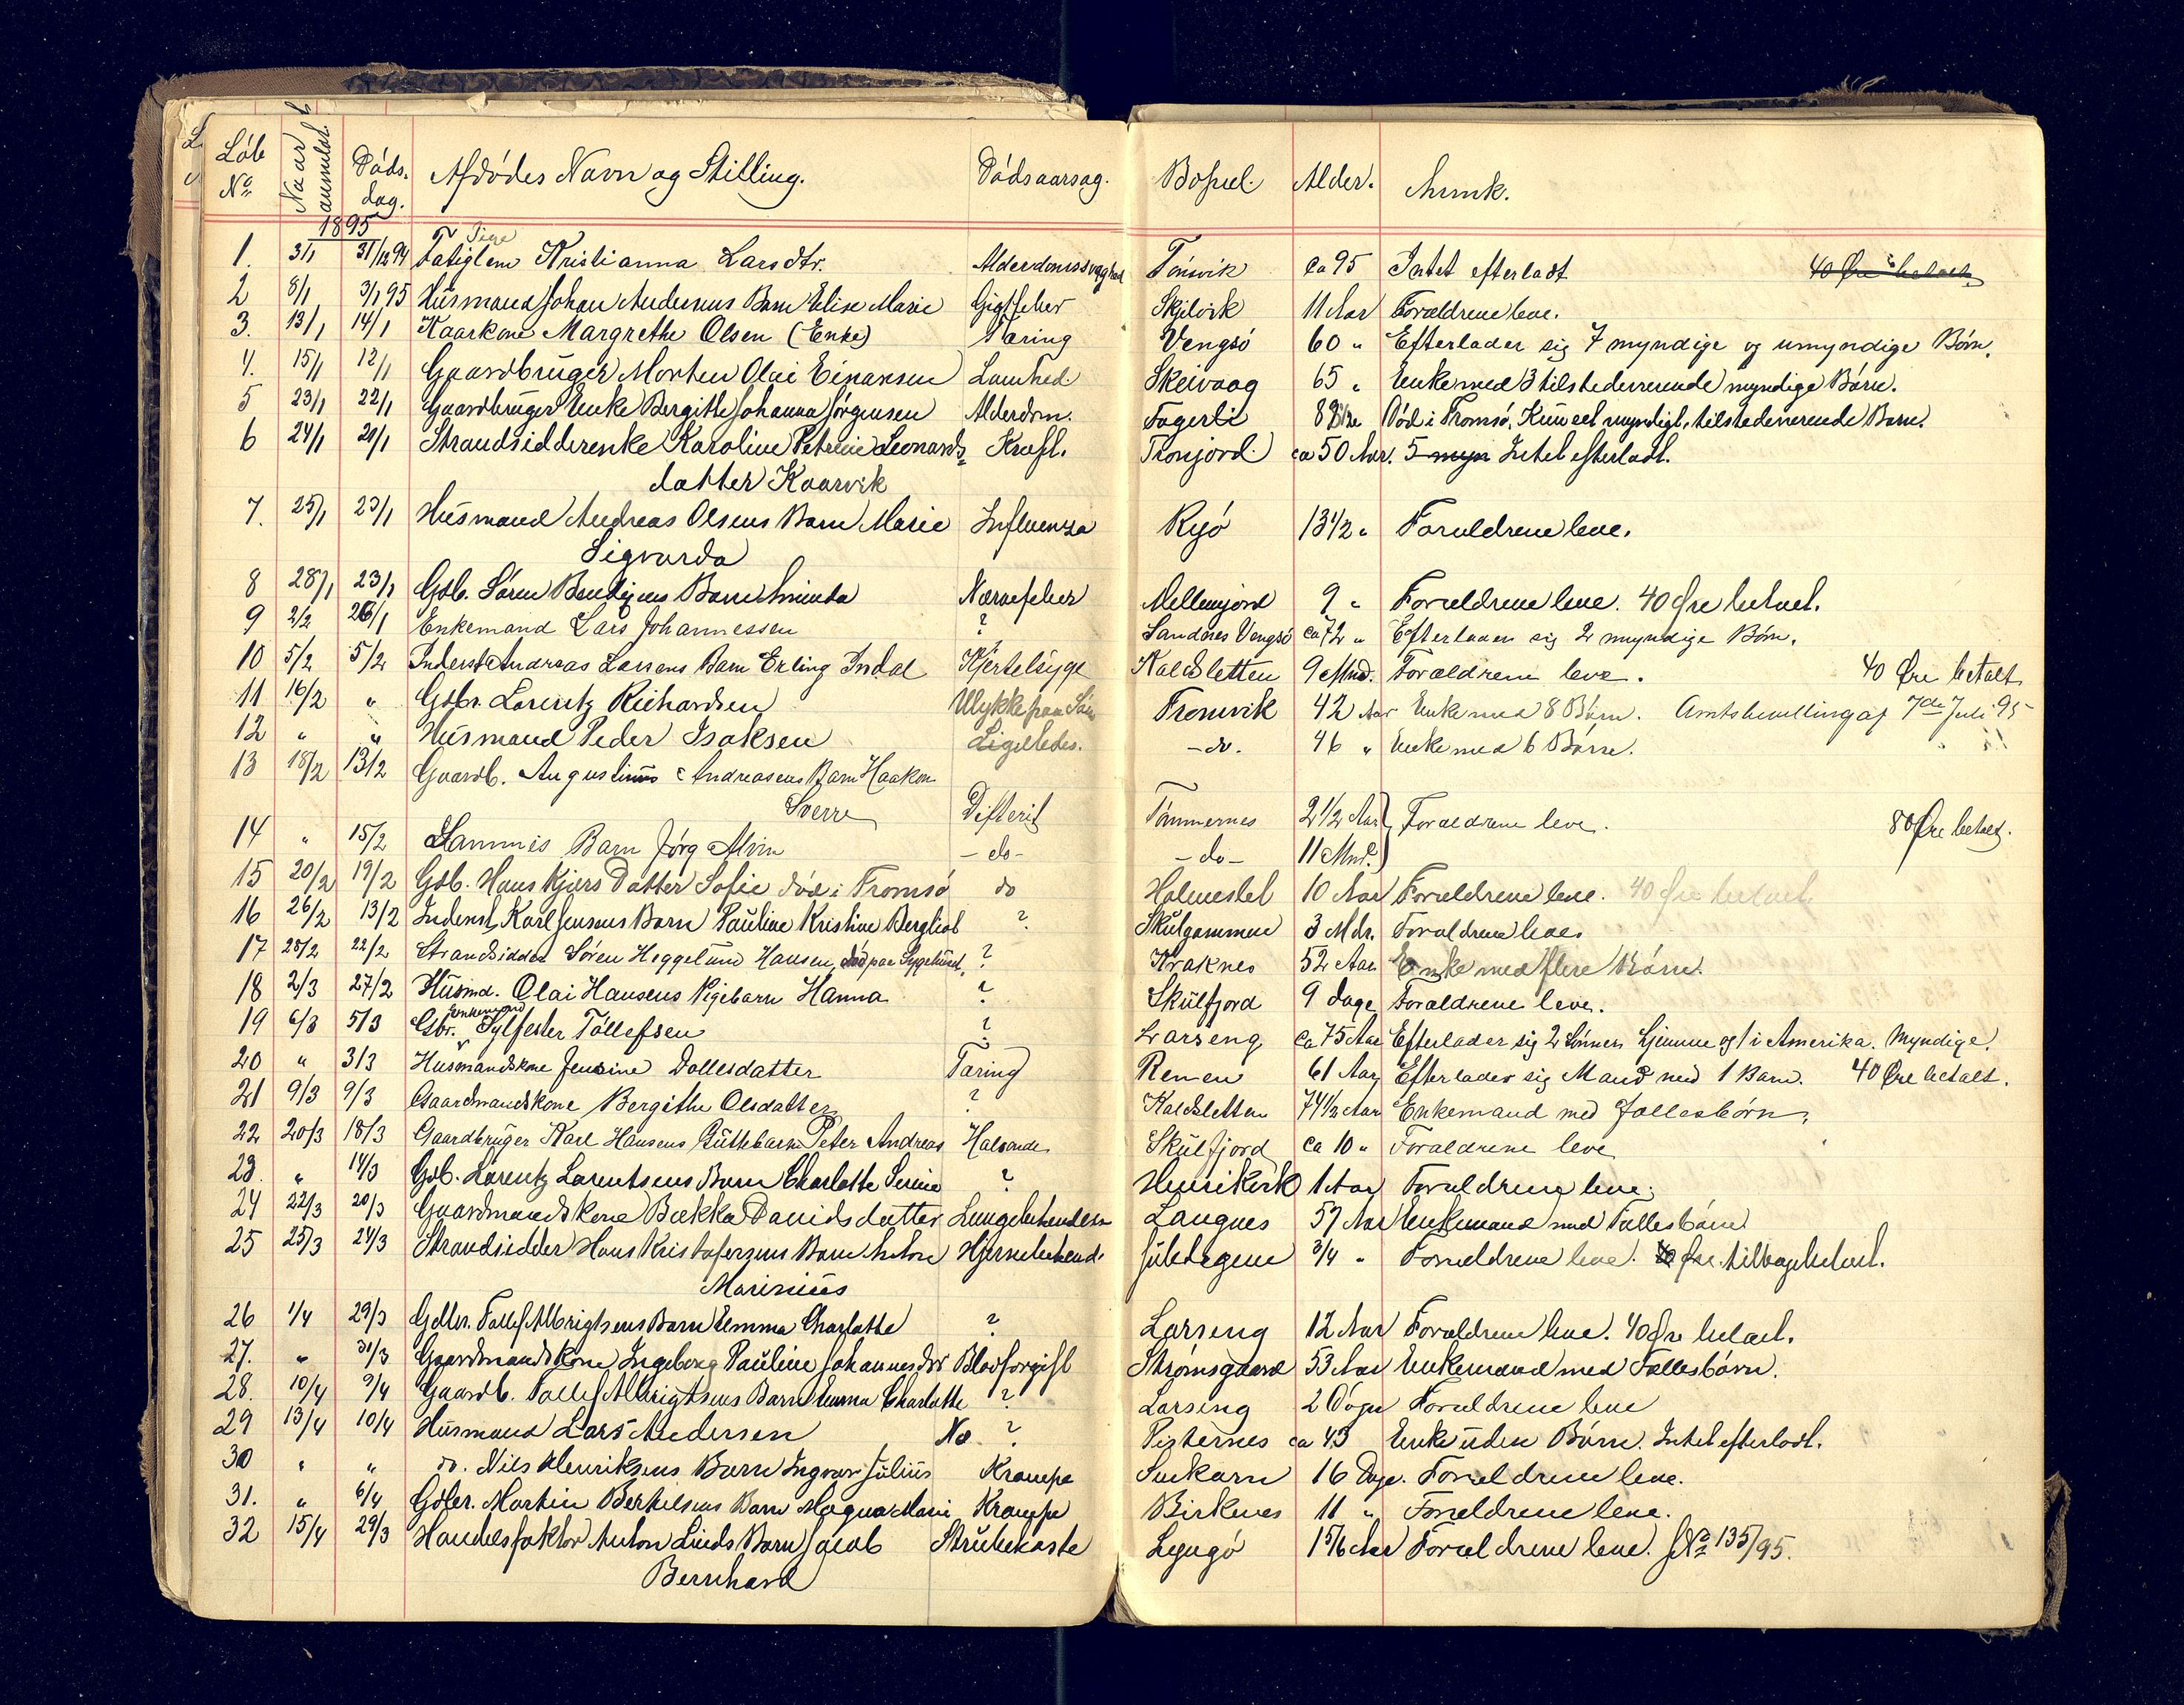 Løb No. Naar anmeldt Døds- dag. Afdødes Navn og Stilling. Dødsaarsag. Bopæl. Alder. Anmk.
1895
1. 3/1 31/12 94 Fatiglem Pige Kristianna Larsdtr. Alderdomssvaghed Tønsvik ca 95 Intet efterladt 40 Øre betalt
2 8/1 3/1 95 Husmand Johan Andersens Barn Elise Marie Gigtfeber Skjelvik 11 Aar Forældrene leve.
3. 13/1 14/1 Kaarkone Margrethe Olsen (Enke) Tæring Vengsö 60 " Efterlader sig 7 myndige og umyndige Börn.
4. 15/1 12/1 Gaardbruger Morten Olai Einarsen Lamhed. Skeivaag 65 " Enke med 3 tilstedeværende myndige Børn.
5 23/1 22/1 Gaardbruger Enke Bergithe Johanna Jörgensen Alderdom. Fagerli Död i Tromsö. Kun eet myndigt, tilstedeværende Barn.
6 24/1 20/1 Strandsidderenke Karoline Petrine Leonards= Kræft. Tronjord ca 50 Aar. 5 myn Intet efterladt.
datter Kaarvik
7. 25/1 23/1 Husmand Andreas Olsens Barn Marie Influenza Ryö 13 1/2 " Forældrene leve.
Sigvarda
8 28/1 23/1 Gdb. Sören Bendigsens Barn Aminda Nervefeber Mellemjord 9 " Forældrene leve. 40 Øre betalt.
9 2/2 26/1 Enkemand Lars Johannessen ? Sandnes Vengsö ca 72 " Efterlader sig 2 myndige Börn.
10 5/2 5/2 Inderst Andreas Larsens Barn Erling Indal Kjertelsyge Kaldsletten 9 Mnd. Forældrene leve. 40 Øre betalt
11 16/2 " Gdbr. Lorentz Richardsen Ulykke paa Söen Tromvik 42 Aar Enke med 8 Börn. Amtsbevilling af 7de Juli 95
12 " " Husmand Peder Isaksen Ligeledes. - do. 46 " Enke med 6 Börn. " "
13 18/2 13/2 Gaardb. Augustinus Andreasens Barn Haakon
Sverre Difterit Tömmernes 2 1/2 Aar Forældrene leve. 80 Øre betalt.
14 " 15/2 Sammes Barn Jörg Alvin - do - - do - 11 Mnd.
15 20/2 19/2 Gdb. Hans Kjærs Datter Sofie död i Tromsö do Holmeslet 10 Aar Forældrene leve. 40 Øre betalt.
16 26/2 13/2 Inderst Karl Jensens Barn Pauline Kristine Bergliot ? Skulgammen 3 Mdr. Forældrene leve.
17 28/2 22/2 Strandsidder Søren Heggelund Hansen, död paa Sygehuset. ? Kraknes 52 Aar Enke med flere Børn.
18 2/3 27/2 Husmd. Olai Hansens Pigebarn Hanna ? Skulfjord 9 dage Forældrene leve.
19 6/3 5/3 Gbr. Enkemand Sylfester Tollefsen ? Larseng ca 75 Aar Efterlader sig 2 Sönner hjemme og 1 i Amerika. Myndige.
20 " 3/3 Husmandskone Jensine Dollesdatter Tæring Renen 61 Aar Efterlader sig Mand med 1 Barn. 40 Øre betalt.
21 9/3 9/3 Gaardmandskone Bergithe Olsdatter ? Kaldsletten 74 1/2 Aar Enkemand med fællesbörn.
22 20/3 18/3 Gaardbruger Karl Hansens Guttebarn Peter Andreas Halsonde Skulfjord ca 10 " Forældrene leve
23. " 14/3 Gdb. Lorentz Lorentsens Barn Charlotte Serine ? Henrikvik 1 Aar Forældrene leve.
24 22/3 20/3 Gaardmandskone Bækka Davidsdatter Lungebetændelse Langnes 57 Aar Enkemand med Fællesbörn
25 25/3 24/3 Strandsidder Hans Kristofersens Barn Anton Hjernebetænd. 3/4 " Forældrene leve. 40 Øre tilbagebetalt.
Marinius
26 1/4 29/3 Gdbr. Tollef Albrigtsens Barn Emma Charlotte ? Larseng 12 Aar Forældrene leve. 40 Øre betalt.
27. " 31/3 Gaardmandskone Ingeborg Pauline Johannesdtr Blodforgift Strømsgaard 53 Aar Enkemand med Fællesbørn.
28. 10/4 9/4 Gaardb. Tollef Albrigtsens Barn Emma Charlotte ? Larseng 2 Dögn Forældrene leve
29 13/4 10/4 Husmand Lars Andersen No ? Pisternes ca 43 Enke uden Børn. Intet efterladt.
30 " " do. Nils Henriksens Barn Ingvar Julius Krampe 16 Dage. Forældrene leve.
31. " 6/4 Gdbr. Martin Bertelsens Barn Magna Marie Krampe Birkenes 11 " Forældrene leve.
32 15/4 29/3 Handelsfaktor Anton Linds Barn Jacob Strubehoste Lyngö 1 5/6 Aar Forældrene leve. J No 135/95.
Bernhard